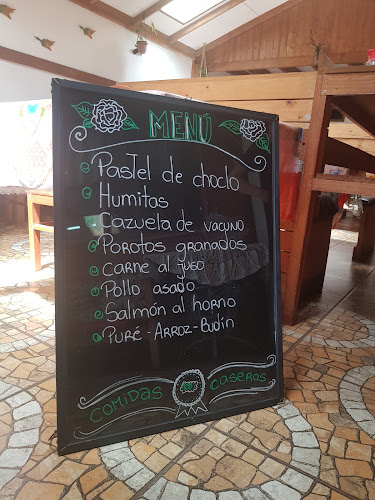 MENÚ
Pastel de choclo
Humitas
Cazuela de vacuno
Porotos granados
Carne al jugo
Pollo asado
Salmón al horno
Puré - Arroz - Budín
COMIDAS CASERAS